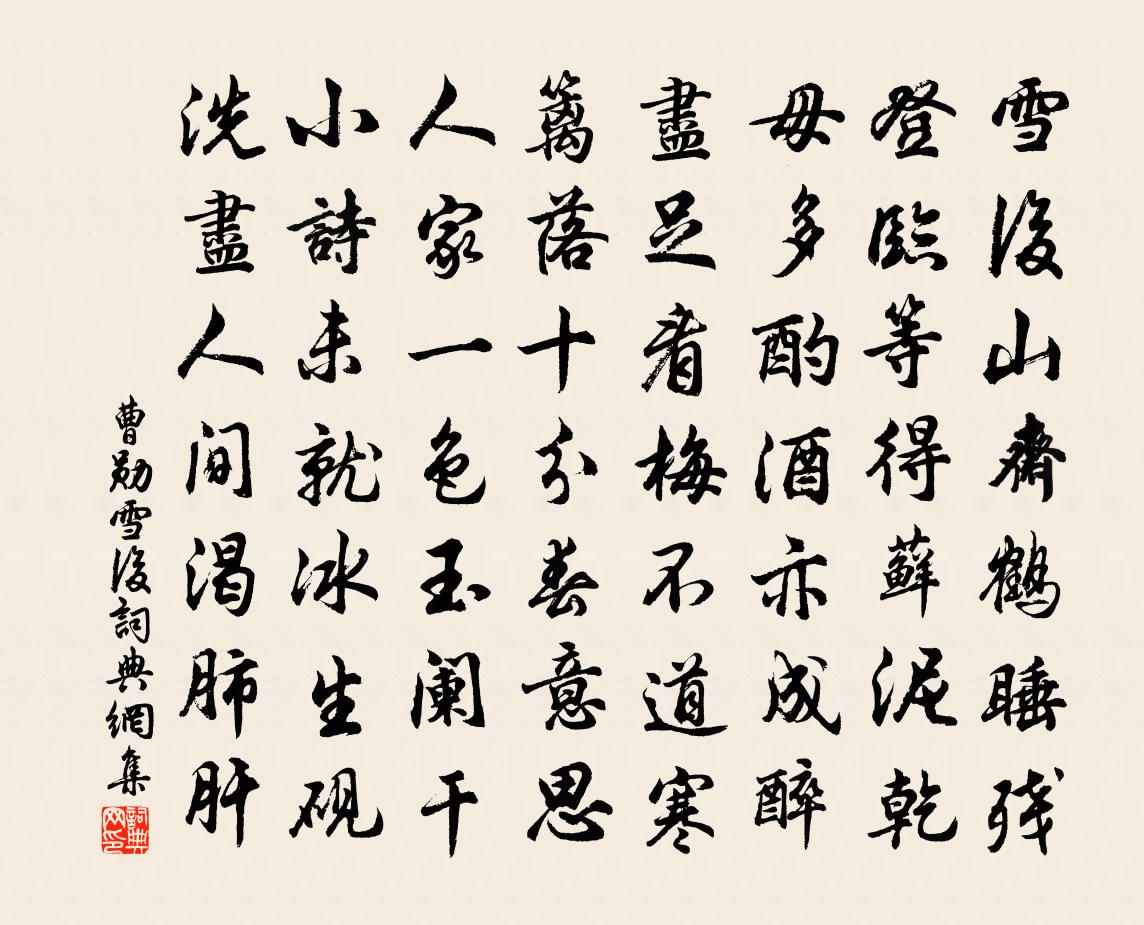 雪後山齋鶴睡残
登臨等得蘚泥乾
毋多酌酒亦成醉
盡足看梅不道寒
籬落十分春意思
人家一色玉阑干
小詩未就冰生硯
洗盡人间渴肺肝
曹勛雪後詞典網集
詞典网印